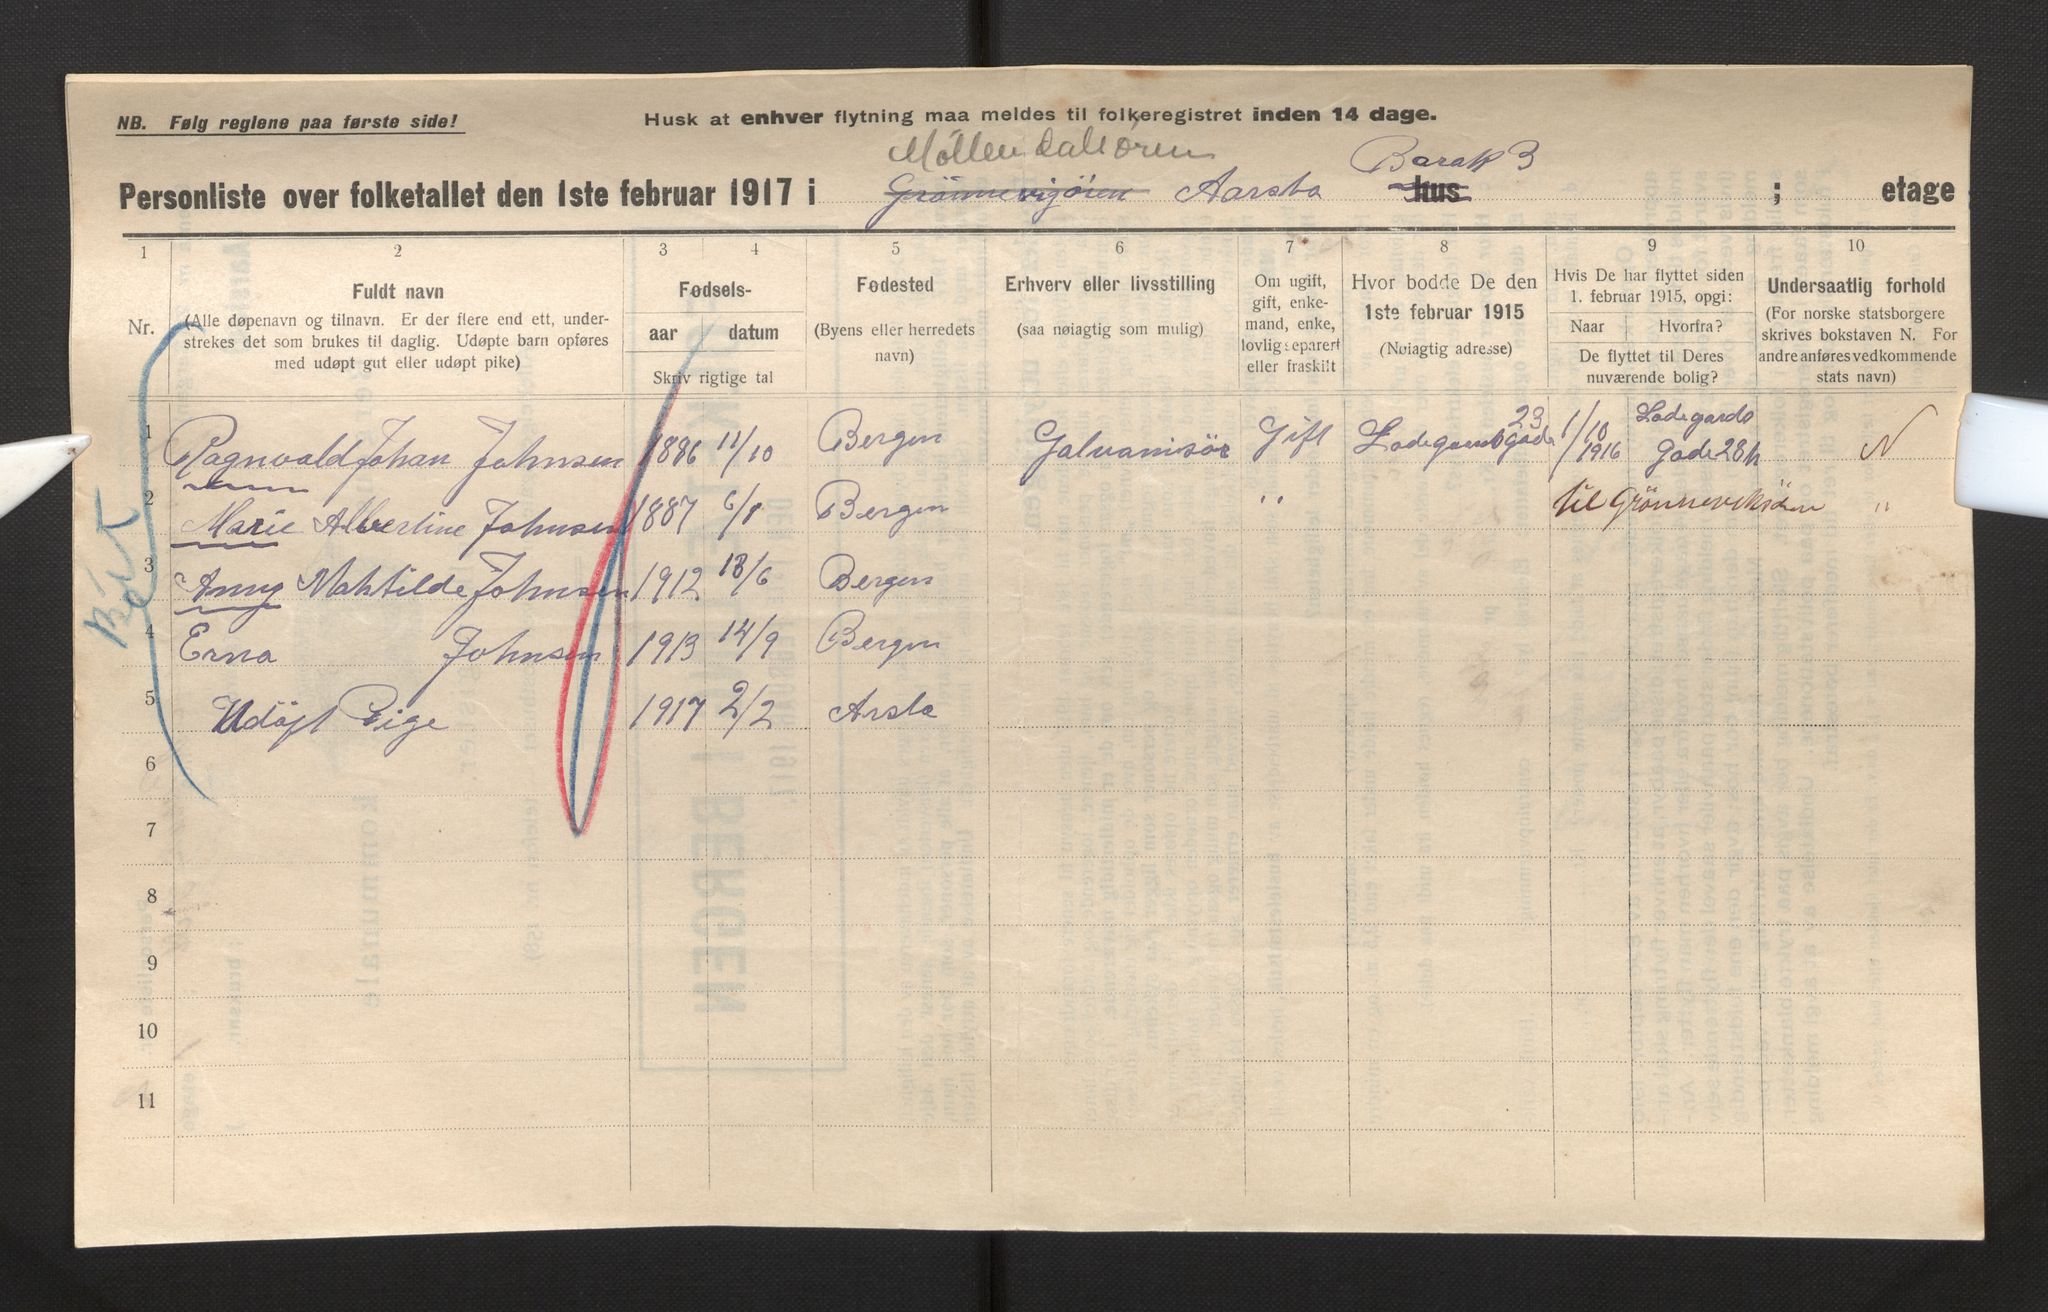 NB. Følg reglene paa første side!
Husk at enhver flytning maa meldes til folkeregistret inden 14 dage.
Möllendalsören
Barak 3
Personliste over folketallet den 1ste februar 1917 i Grönnevigören Aarsta hus ; etage
1 2 3 4 5 6 7 8 9 10
Nr.
Fuldt navn
(Alle døpenavn og tilnavn. Er der flere end ett, under-
strekes det som brukes til daglig. Udøpte barn opføres
med udøpt gut eller udøpt pike)
Fødsels-
aar datum
Skriv rigtige tal
Fødested
(Byens eller herredets
navn)
Erhverv eller livsstilling
(saa nøiagtig som mulig)
Om ugift,
gift, enke-
mand, enke,
lovlig separert
eller fraskilt
Hvor bodde De den
1ste februar 1915
(Nøiagtig adresse)
Hvis De har flyttet siden
1. februar 1915, opgi:
Naar Hvorfra?
De flyttet til Deres
nuværende bolig?
Undersaatlig forhold
(For norske statsborgere
skrives bokstaven N. For
andre anføres vedkommende
stats navn)
1 Ragnvald Johan Johnsen 1886 11/10 Bergen Galvanisör Gift Ladegaardsgade 23 1/10 1916 Ladegards Gade 28 N
2 Marie Albertine Johnsen 1887 6/8 Bergen " til Grönneviksören "
3 Anny Mahtilde Johnsen 1912 18/6 Bergen
4 Erna Johnsen 1913 14/9 Bergen
5 Udöpt Pige 1917 2/2 Arsta
6
7
8
9
10
11